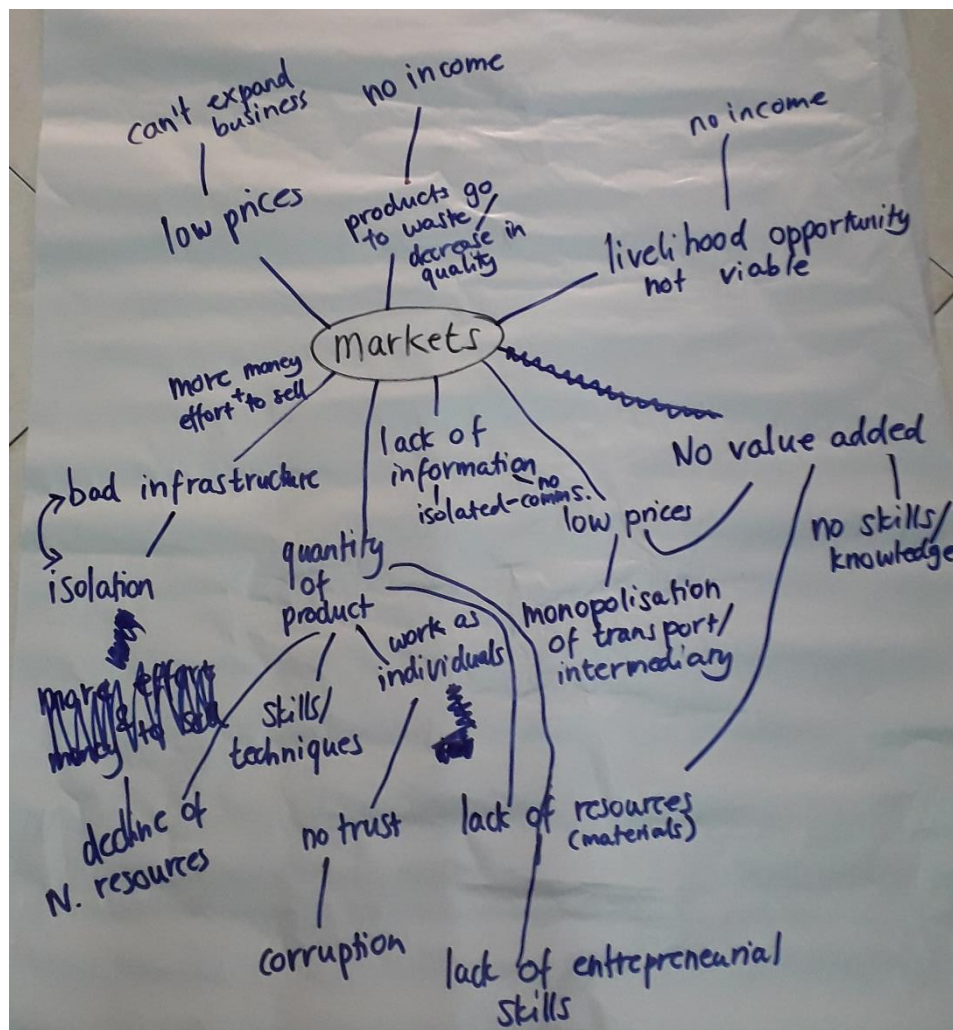 can't expand
business
no income
no income
low prices
products go
to waste/
decrease in
quality
livelihood opportunity
not viable
markets
more money
effort + to sell
lack of
information
isolated - no
comms.
No value added
bad infrastructure
low prices
no skills/
knowledge
isolation
quantity
of
product
work as
individuals
monopolisation
of transport/
intermediary
more effort
money & to sell
skills/
techniques
decline of
N. resources
no trust
lack of resources
(materials)
corruption
lack of entrepreneurial
skills